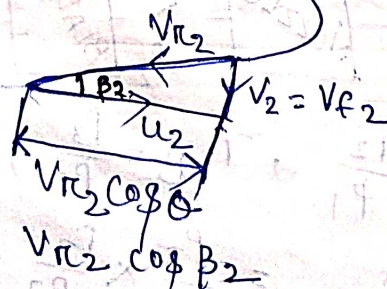 Vr2
β2
V2 = Vf2
u2
Vr2 cos θ
Vr2 cos β2